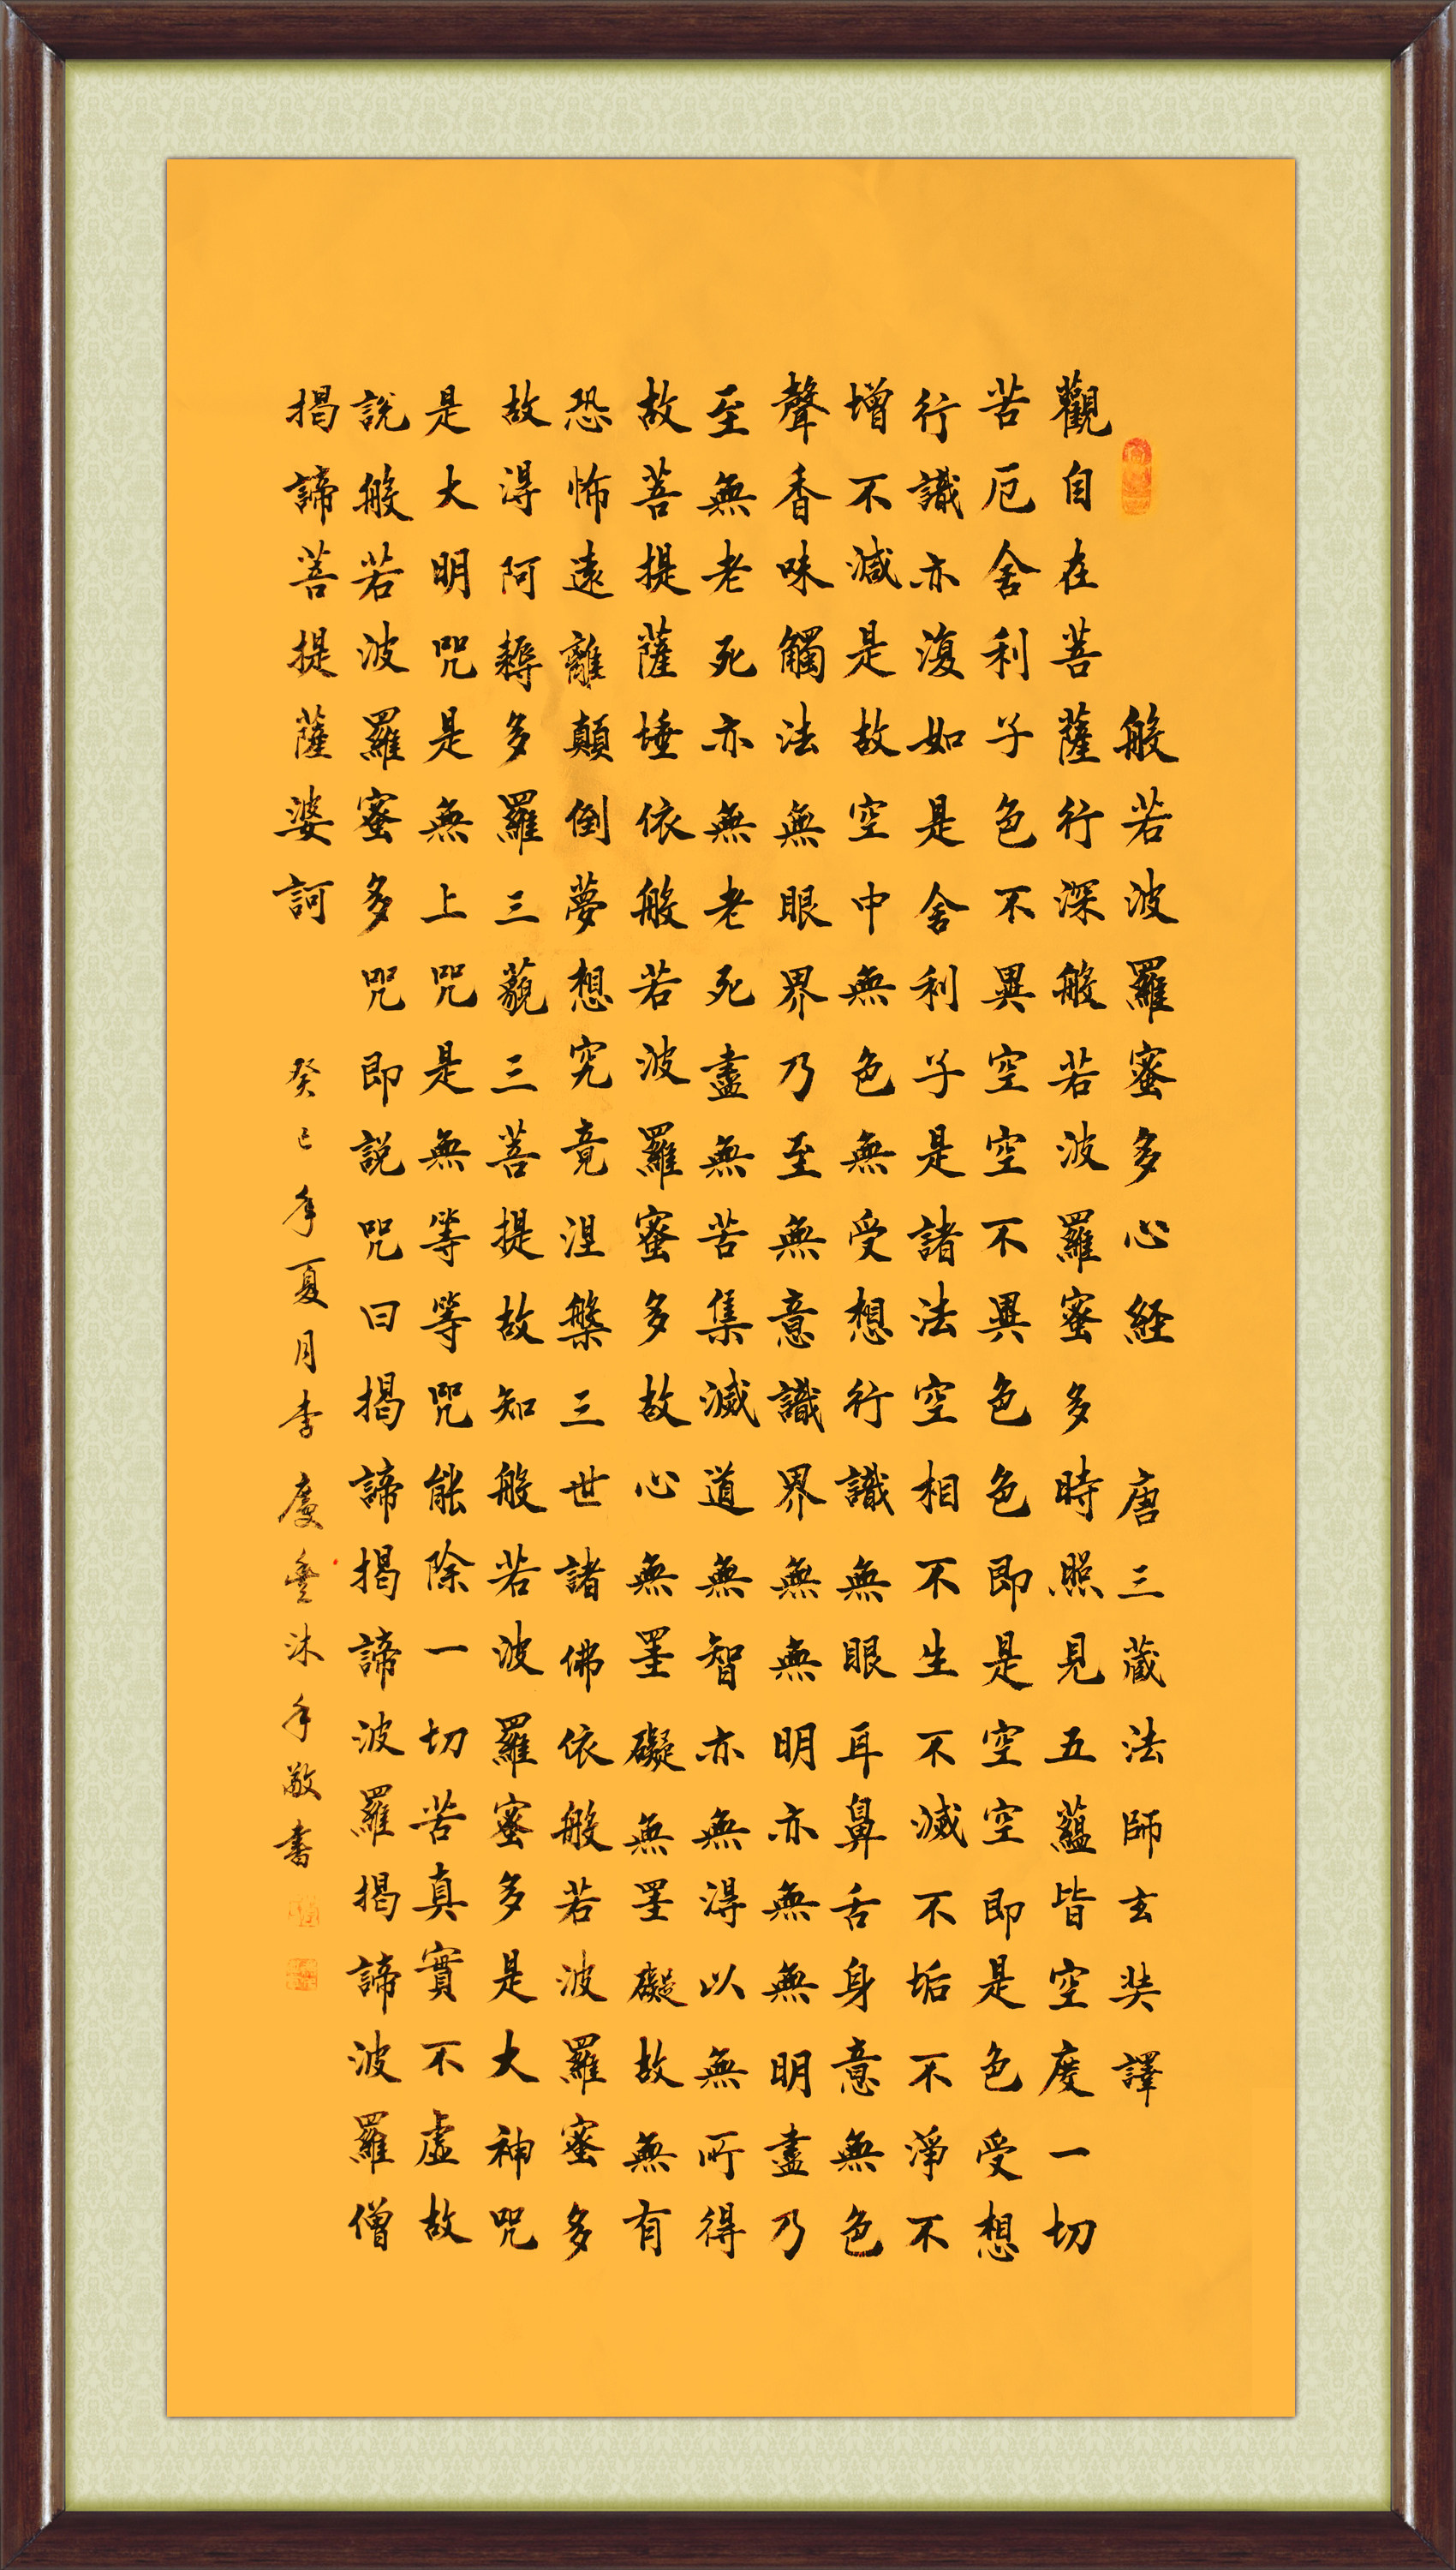 般若波羅蜜多心経 唐三蔵法師玄奘譯
觀自在菩薩行深般若波羅蜜多時照見五蘊皆空度一切
苦厄舍利子色不異空空不異色色即是空空即是色受想
行識亦復如是舍利子是諸法空相不生不滅不垢不淨不
增不減是故空中無色無受想行識無眼耳鼻舌身意無色
聲香味觸法無眼界乃至無意識界無無明亦無無明盡乃
至無老死亦無老死盡無苦集滅道無智亦無得以無所得
故菩提薩埵依般若波羅蜜多故心無罣礙無罣礙故無有
恐怖遠離顛倒夢想究竟涅槃三世諸佛依般若波羅蜜多
故得阿耨多羅三藐三菩提故知般若波羅蜜多是大神咒
是大明咒是無上咒是無等等咒能除一切苦真實不虛故
說般若波羅蜜多咒即說咒曰揭諦揭諦波羅揭諦波羅僧
揭諦菩提薩婆訶 癸巳年夏月李慶豐沐手敬書